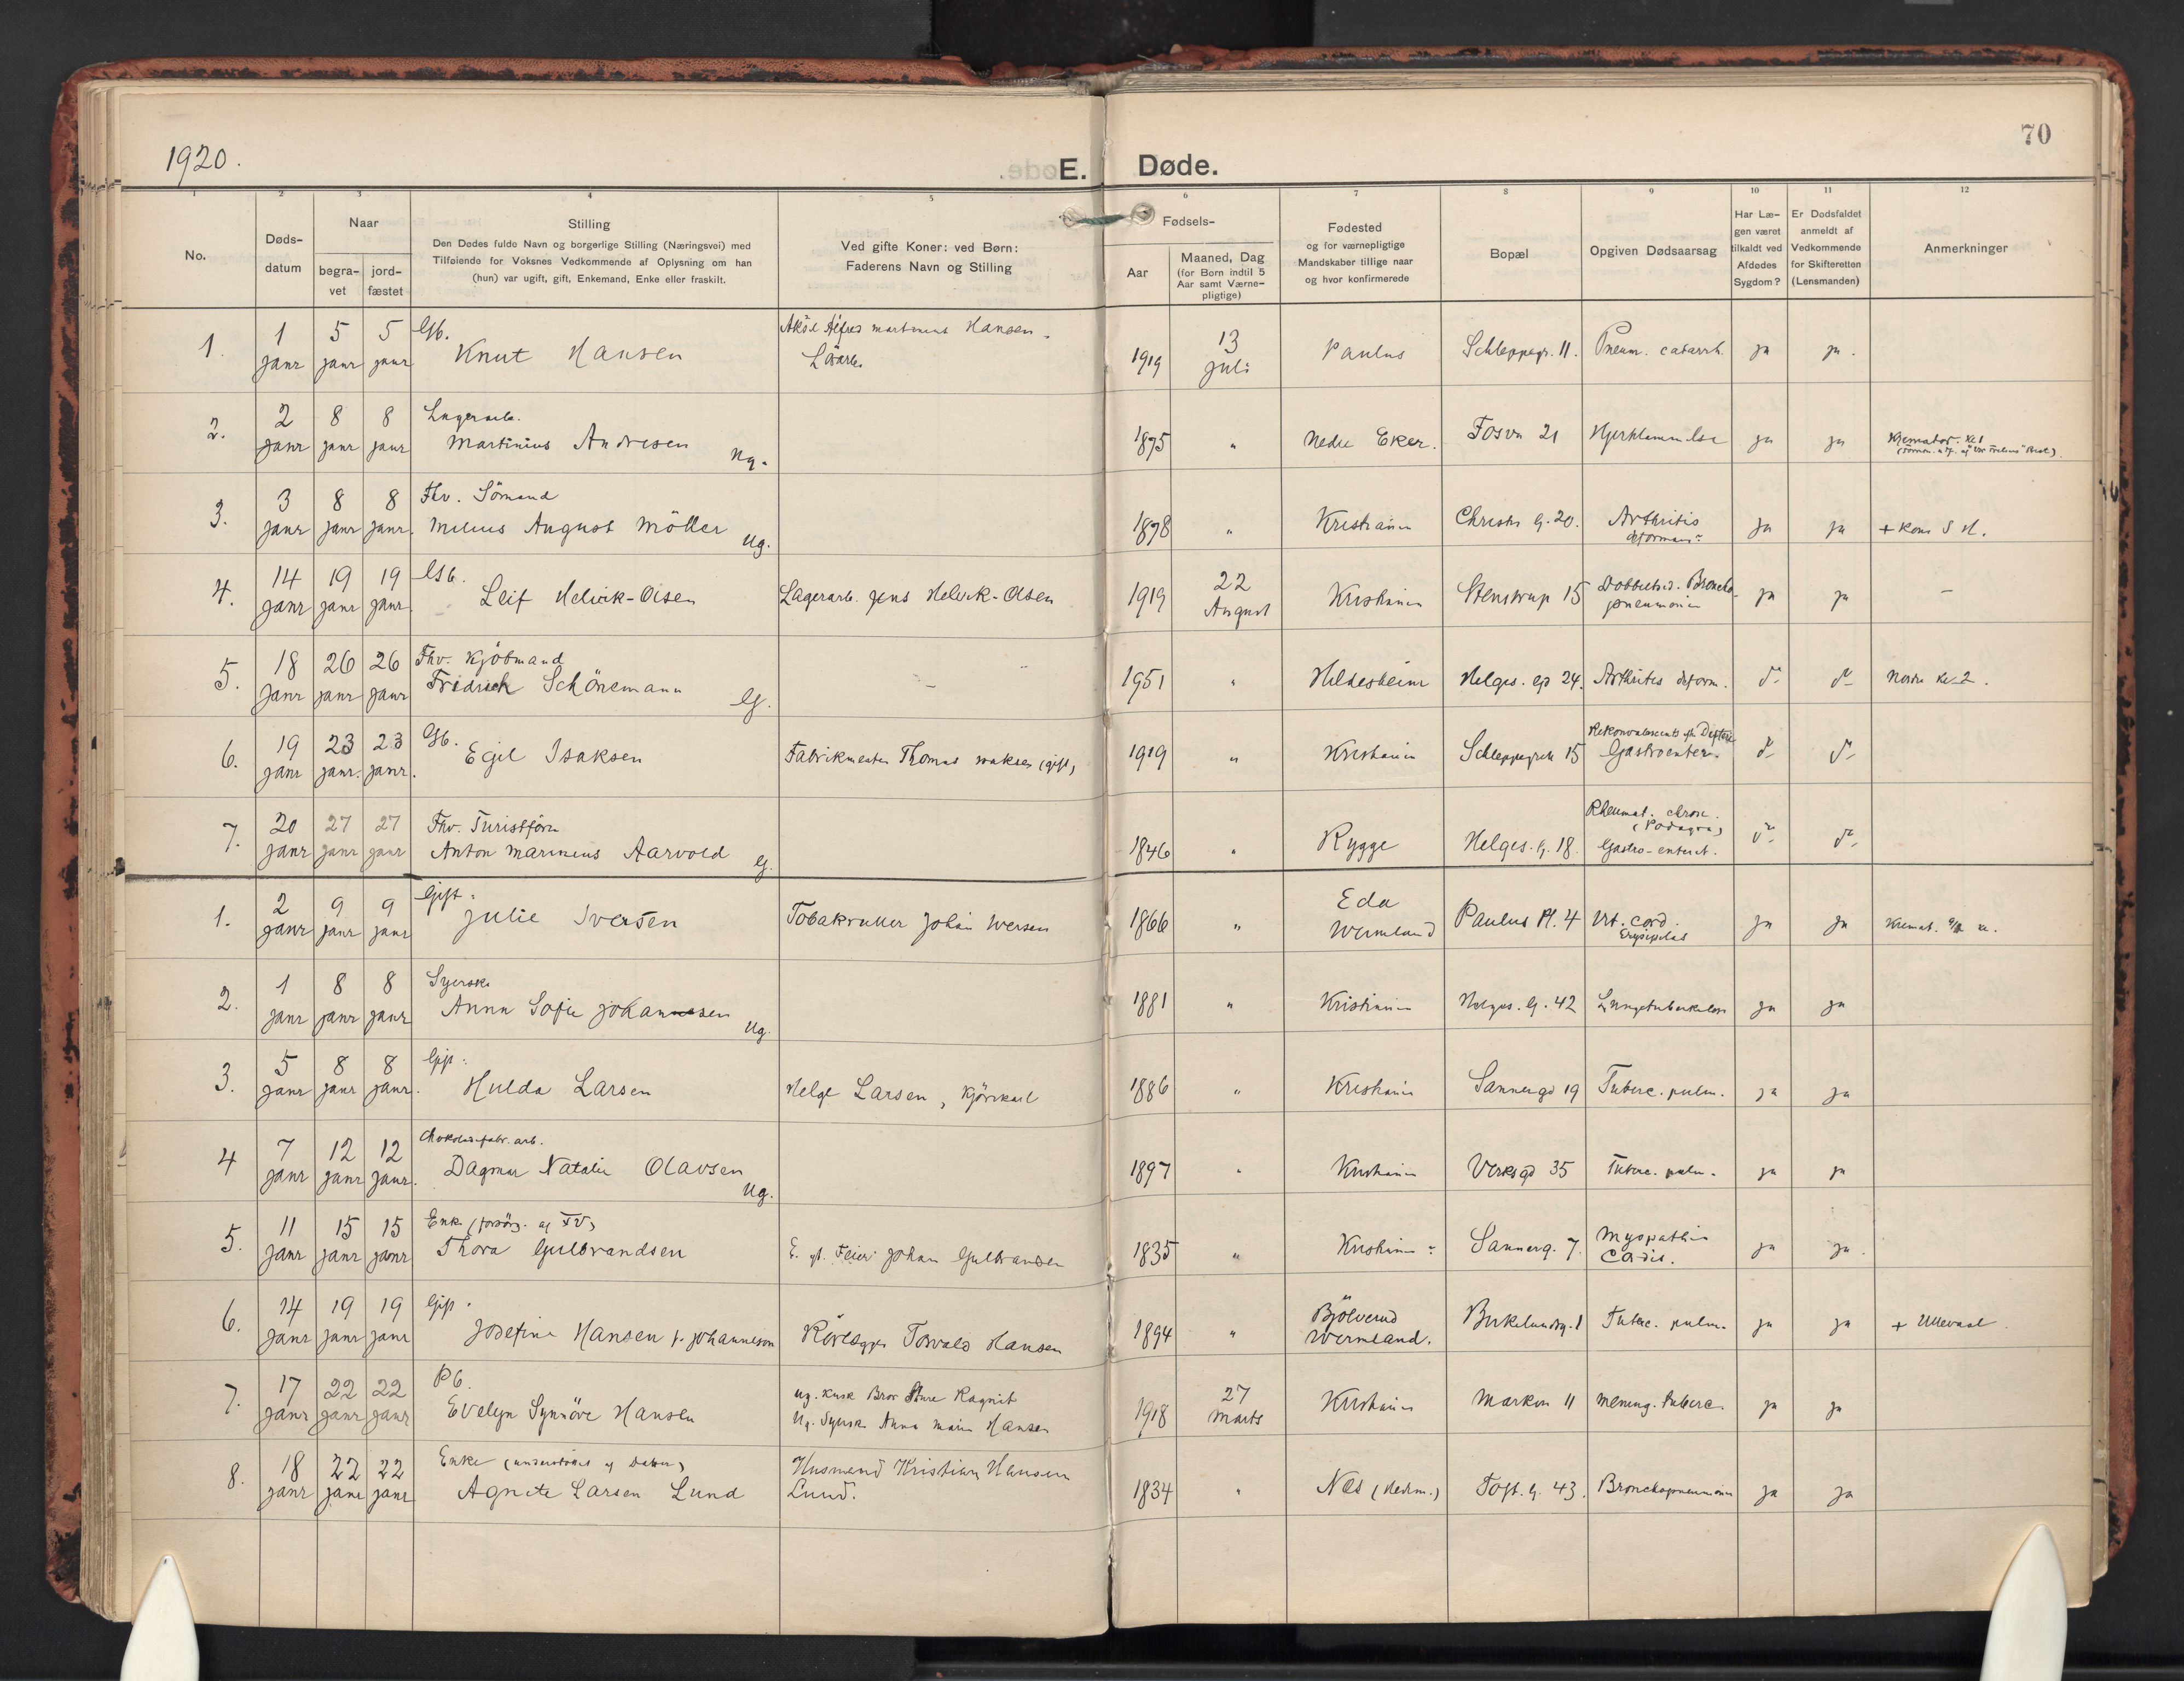 1920.
E. Døde.
70
1 2 3 4 5 6 7 8 9 10 11 12
No.
Døds-
datum
Naar
begra-
vet
jord-
fæstet
Stilling
Den Dødes fulde Navn og borgerlige Stilling (Næringsvei) med
Tilføiende for Voksnes Vedkommende af Oplysning om han
(hun) var ugift, gift, Enkemand, Enke eller fraskilt.
Ved gifte Koner: ved Børn:
Faderens Navn og Stilling
Fødsels-
Aar
Maaned, Dag
(for Børn indtil 5
Aar samt Værne-
pligtige)
Fødested
og for værnepligtige
Mandskaber tillige naar
og hvor konfirmerede
Bopæl
Opgiven Dødsaarsag
Har Læ-
gen været
tilkaldt ved
Afdødes
Sygdom?
Er Dødsfaldet
anmeldt af
Vedkommende
for Skifteretten
(Lensmanden)
Anmerkninger
1. 1 janr 5 janr 5 janr Gb.
Knut Hansen
Aksel Alfred Martinius Hansen.
1919 13 juli Paulus Schleppegr. 11. Pneum. catarrh. ja ja.
2. 2 janr 8 janr 8 janr Lagerarb.
Martinius Andresen Ug.
1875 " Nedre Eker. Fosvn 21 ja ja Kremator. Kl 1
3. 3 janr 8 janr 8 janr. Fhv. Sömand
August Möller Ug.
1878 " Kristiania Christies G. 20. Arthritis
deformans ja ja + Kom S H.
4. 14 janr 19 janr 19 janr Gb.
Leif Helvik-Olsen
Lagerarb. Jens Helvik-Olsen
1919 22 August Kristiania Stenstrup 15 Dobbeltsid. Broncho-
pneumonia ja ja –
5. 18 janr 26 janr 26 janr Fhv. Kjöbmand
Fridrich Schönemann G.
–
1951 " Hildesheim Helges. gd 24. Arthritis deform. do do Nordre Kl 2.
6. 19 janr 23 janr. 23 janr. Gb.
Egil Isaksen
Fabrikmester Thomas Isaksen (gift)
1919 " Kristiania Schleppegrels 15 Rekonvalescents eft. Difteri
Gastroenter. do do
7. 20 janr 27 janr 27 janr Fhv. Turistförer
Anton Marinius Aarvold G.
1846 " Rygge Helges. G. 18. Rheumat. chron.
(Podagra)
Gastro-enterit. do do
1. 2 janr 9 janr 9 janr Gift.
Julie Iversen
Tobakruller Johan Iversen
1866 " Eda
Wermland Paulus Pl. 4 Vit. cord.
Erysipelas ja ja Kremat.
2. 1 janr 8 janr 8 janr Syerske
Anna Sofie Johannesen Ug.
1881 " Kristiania Helges. G. 42 Lungetuberkulose ja ja
3. 5 janr 8 janr 8 janr. Gift.
Hulda Larsen
Helge Larsen, Kjörekarl
1886 " Kristiania Sannergd 19 Tuberc. pulm. ja ja
4 7 janr 12 janr 12 janr. Chokoladefabr. arb.
Dagmar Natalie Olavsen Ug.
1897 " Kristiania Verksgd 35 Tuberc. pulm. ja ja
5. 11 janr 15 janr 15 janr Enke (forsörg. af FV)
Thora Gulbrandsen
E. eft. Feier Johan Gulbrandsen
1835 " Kristiania Sannerg. 7. Myopathia
Cordis. ja ja.
6. 14 janr 19 janr 19 janr Gift.
Josefine Hansen f. Johannesson
Rörlægger Torvald Hansen
1894 " Bjölverud
Wermland. Birkelundsg. 1 Tuberc. pulm. ja ja + Ullevaal.
7. 17 janr 22 janr 22 janr Pb.
Evelyn Synnöve Hansen
Ug. Kusk Bror Sture Ragnit
Ug. Syersk. Anna Marie Hansen
1918 27 Marts Kristiania Markvn 11 Mening. tuberc. ja ja
8. 18 janr 22 janr 22 janr Enke (understöttes af Datter)
Agnete Larsen Lund
Husmand Kristian Hansen
Lund.
1834 " Næs (Hedm.) Toft. G. 43. Bronchopneumonia ja ja